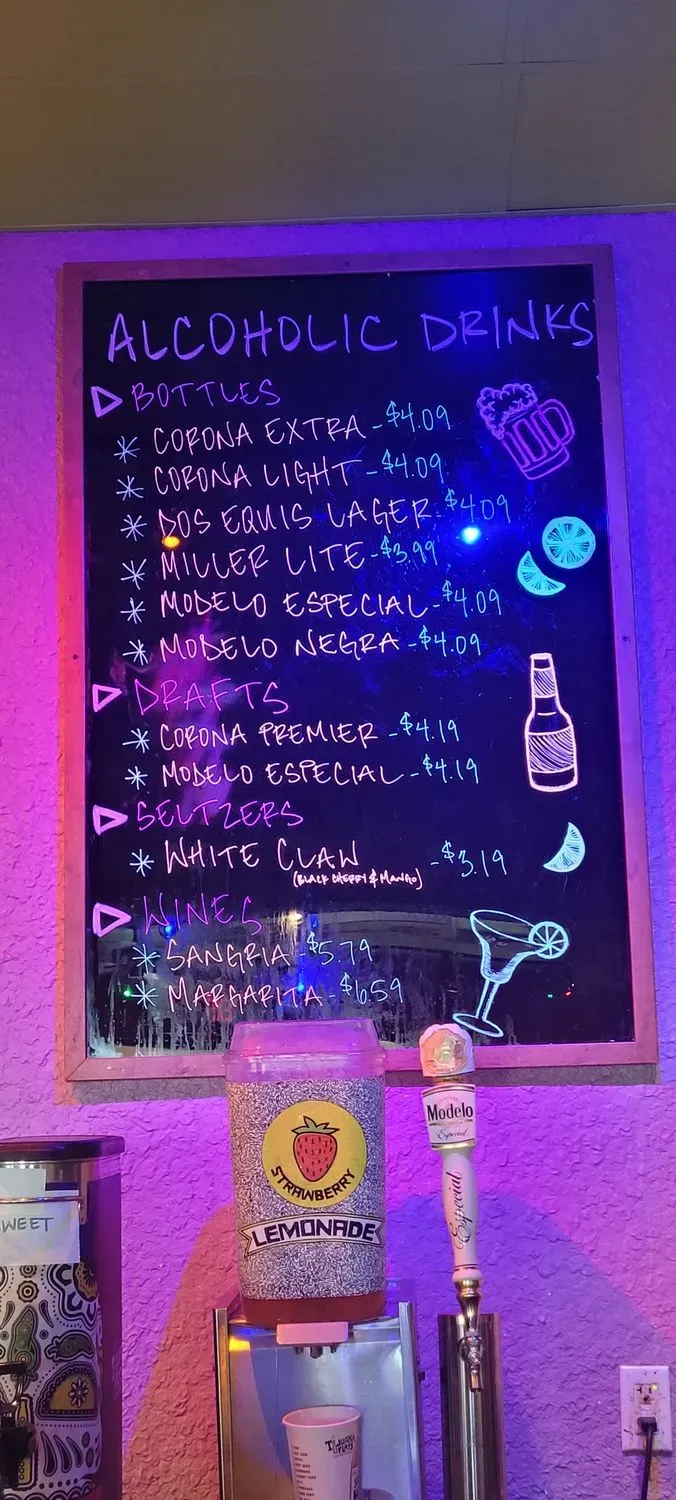 ALCOHOLIC DRINKS
▷ BOTTLES
* CORONA EXTRA - $4.09
* CORONA LIGHT - $4.09
* DOS EQUIS LAGER - $4.09
* MILLER LITE - $3.99
* MODELO ESPECIAL - $4.09
* MODELO NEGRA - $4.09
▷ DRAFTS
* CORONA PREMIER - $4.19
* MODELO ESPECIAL - $4.19
▷ SELTZERS
* WHITE CLAW - $3.19
(BLACK CHERRY & MANGO)
▷ WINES
* SANGRIA - $5.79
* MARGARITA - $6.59
STRAWBERRY
LEMONADE
Modelo
Especial
Especial
SWEET
TIJUANA
FLATS